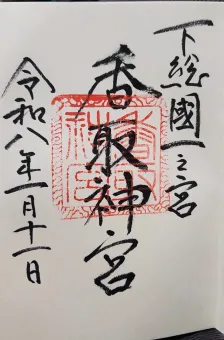 下総國一之宮
香取神宮
令和八年一月十一日